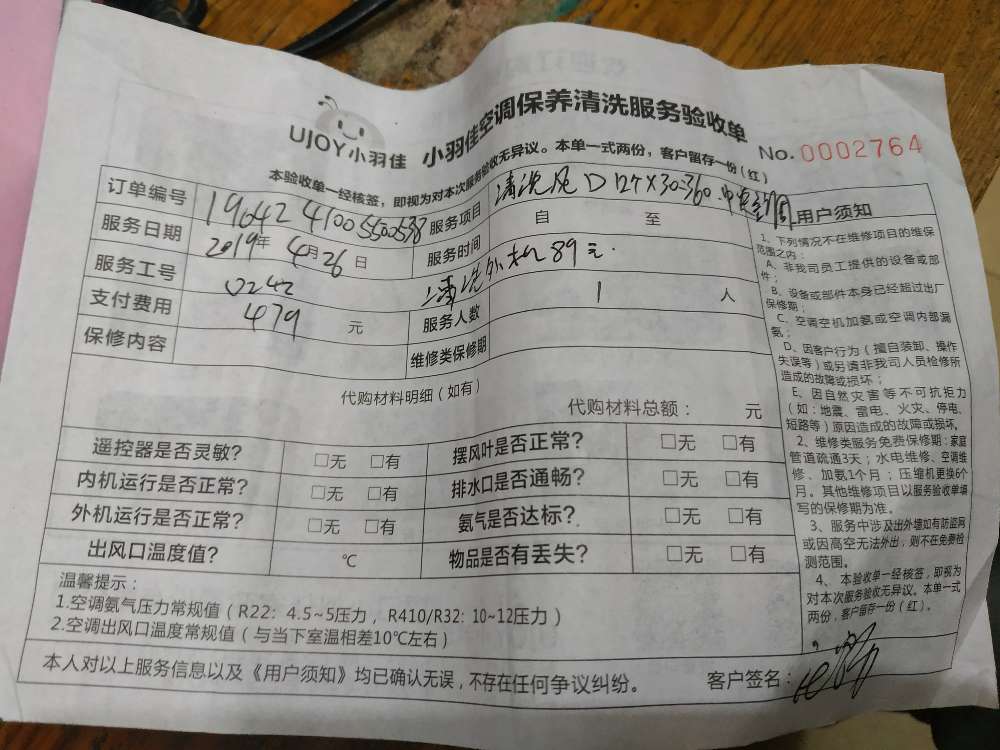 UJOY小羽佳 小羽佳空调保养清洗服务验收单 No.0002764
本验收单一经核签，即视为对本次服务验收无异议。本单一式两份，客户留存一份（红）
订单编号 1904241005500538 服务项目 清洗 360 中央空调
服务日期 2019年4月26日 服务时间 自 至
服务工号 0242 清洗外机89元
支付费用 479 元 服务人数 1 人
保修内容 维修类保修期
代购材料明细（如有）
代购材料总额： 元
遥控器是否灵敏？ □无 □有 摆风叶是否正常？ □无 □有
内机运行是否正常？ □无 □有 排水口是否通畅？ □无 □有
外机运行是否正常？ □无 □有 氨气是否达标？ □无 □有
出风口温度值？ ℃ 物品是否有丢失？ □无 □有
温馨提示：
1.空调氨气压力常规值（R22：4.5~5压力，R410/R32：10~12压力）
2.空调出风口温度常规值（与当下室温相差10℃左右）
本人对以上服务信息以及《用户须知》均已确认无误，不存在任何争议纠纷。 客户签名：
用户须知
1、下列情况不在维修项目的维保
范围之内：
A、非我司员工提供的设备或部
件；
B、设备或部件本身已经超过出厂
保修期；
C、空调空机加氨或空调内部漏
氨；
D、因客户行为（擅自装卸、操作
失误等）或另请非我司人员检修所
造成的故障或损坏；
E、因自然灾害等不可抗拒力
（如：地震、雷电、火灾、停电、
短路等）原因造成的故障或损坏。
2、维修类服务免费保修期：家庭
管道疏通3天；水电维修、空调维
修、加氨1个月；压缩机更换6个
月。其他维修项目以服务验收单填
写的保修期为准。
3、服务中涉及出外墙如有防盗网
或因高空无法外出，则不在免费检
测范围。
4、本验收单一经核签，即视为
对本次服务验收无异议。本单一式
两份，客户留存一份（红）。